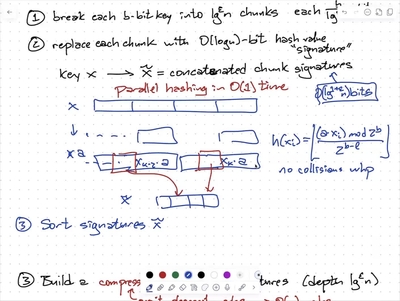 ① break each b-bit key into lgᵋn chunks each
② replace each chunk with O(logn)-bit hash value
"signature"
key x → x̃ = concatenated chunk signatures
parallel hashing in O(1) time
O(lg¹⁺ᵋn) bits
x
h(xᵢ) = ⌊(a·xᵢ) mod 2ᵇ / 2ᵇ⁻ˡ⌋
x·a
xₖ₋₂·a
xₖ·a
no collisions whp
x̃
③ Sort signatures x̃
③ Build a compress tures (depth lgᵋn)